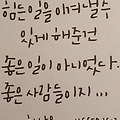 힘든 일을 이겨낼수
있게 해준건
좋은 일이 아니었다.
좋은 사람들이지...